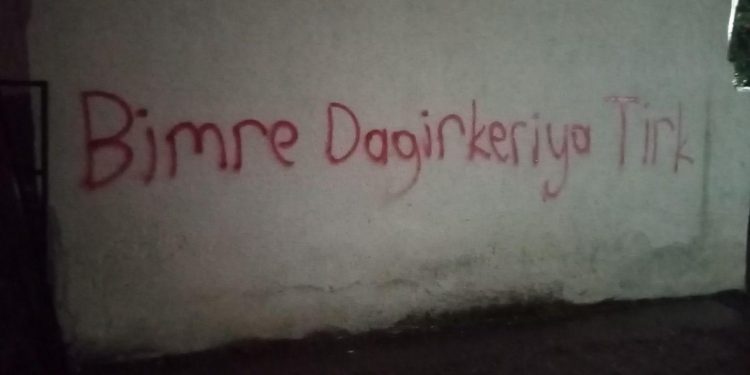 Bimre Dagirkeriya Tirk